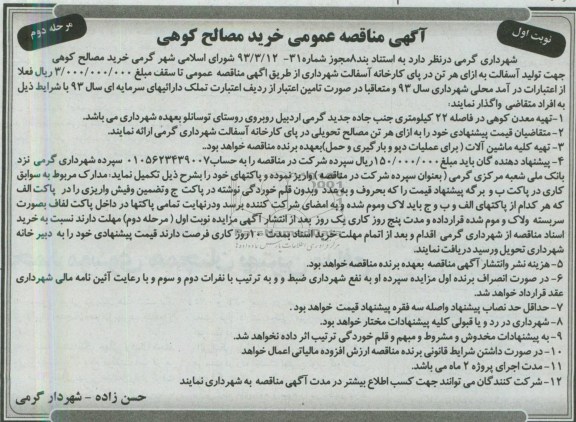 نوبت اول
آگهی مناقصه عمومی خرید مصالح کوهی
مرحله دوم
شهرداری گرمی درنظر دارد به استناد بند۸مجوز شماره۳۱- ۹۳/۳/۱۲ شورای اسلامی شهر گرمی خرید مصالح کوهی
جهت تولید آسفالت به ازای هر تن در پای کارخانه آسفالت شهرداری از طریق اگهی مناقصه عمومی تا سقف مبلغ ۳/۰۰۰/۰۰۰/۰۰۰ ریال فعلا
از اعتبارات در آمد محلی شهرداری سال ۹۳ و متعاقبا در صورت تامین اعتبار از ردیف اعتبارت تملک دارائیهای سرمایه ای سال ۹۳ با شرایط ذیل
به افراد متقاضی واگذار نمایند:
۱-تهیه معدن کوهی در فاصله ۲۲ کیلومتری جنب جاده جدید گرمی اردبیل روبروی روستای توسانلو بعهده شهرداری می باشد.
۲-متقاضیان قیمت پیشنهادی خود را به ازای هر تن مصالح تحویلی در پای کارخانه آسفالت شهرداری گرمی ارائه نمایند.
۳- تهیه کلیه ماشین آلات ( برای عملیات دپو و بارگیری و حمل)بعهده برنده مناقصه خواهد بود..
۴- پیشنهاد دهنده گان باید مبلغ۱۵۰/۰۰۰/۰۰۰ریال سپرده شرکت در مناقصه را به حساب۰۱۰۵۶۲۳۴۳۹۰۰۷ سپرده شهرداری گرمی نزد
بانک ملی شعبه مرکزی گرمی ( بعنوان سپرده شرکت در مناقصه) واریز نموده و پاکتهای خود را بشرح ذیل تکمیل نماید: مدارک مربوط به سوابق
کاری در پاکت ب و برگه پیشنهاد قیمت را که بحروف و به عدد وبدون قلم خوردگی نوشته در پاکت ج وتضمین وفیش واریزی را در پاکت الف
که هر کدام از پاکتهای الف و ب و ج باید لاک وموم شده و به امضای شرکت کننده برسد ودرنهایت تمامی پاکتها در داخل پاکت لفاف بصورت
سربسته ولاک و موم شده قرارداده و مدت پنج روز کاری یک روز بعد از انتشار آگهی مزایده نوبت اول ( مرحله دوم) مهلت دارند نسبت به خرید
اسناد مناقصه از شهرداری گرمی اقدام و بعد از اتمام مهلت خرید اسناد بمدت ۱۰روز کاری فرصت دارند قیمت پیشنهادی خود را به دبیر خانه
شهرداری تحویل ورسید دریافت نمایند.
۵- هزینه نشر وانتشار آگهی مناقصه بعهده برنده مناقصه خواهد بود.
۶- در صورت انصراف برنده اول مزایده سپرده او به نفع شهرداری ضبط و و به ترتیب با نفرات دوم و سوم و با رعایت آئین نامه مالی شهرداری
عقد قرارداد خواهد شد.
۷-حداقل حد نصاب پیشنهاد واصله سه فقره پیشنهاد قیمت خواهد بود .
۸- شهرداری در رد و یا قبولی کلیه پیشنهادات مختار خواهد بود.
۹- به پیشنهادات مخدوش و مشروط و مبهم و قلم خوردگی ترتیب اثر داده نخواهد شد.
۱۰- در صورت داشتن شرایط قانونی برنده مناقصه ارزش افزوده مالیاتی اعمال خواهد
۱۱- مدت اجرای پروژه ۲ ماه می باشد.
۱۲- شرکت کنندگان می توانند جهت کسب اطلاع بیشتر در مدت آگهی مناقصه به شهرداری نمایند
حسن زاده - شهردار گرمی